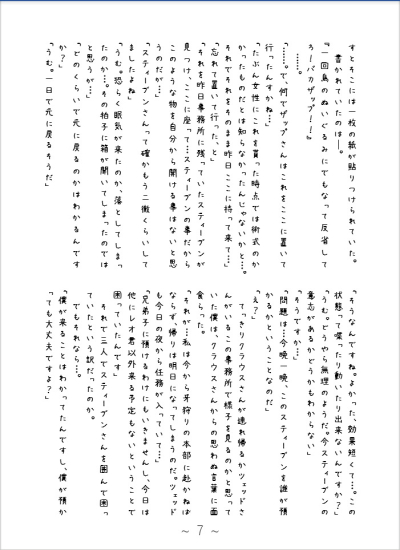 すとそこには一枚の紙が貼りつけられていた。
書かれていたのは―。
『一回鳥のぬいぐるみにでもなって反省して
ろ！バカザップ！！』
……。
「……で、何でザップさんはこれをここに置いて
行ったんすかね…」
「たぶん女性にこれを貰った時点では術式のか
かったものだとは知らなかったんじゃないかと…。
それでそれをそのまま昨日ここに持って来て…」
「忘れて置いて行った、と」
「それを昨日事務所に残っていたスティーブンが
見つけ、ここに座って…スティーブンの事だから
このような物を自分から開ける事はないと思
うのだが…」
「スティーブンさんって確かもう二徹くらいして
ましたよね」
「うむ。恐らく眠気が来たのか、落としてしまっ
たのか…。その拍子に箱が開いてしまったのでは
と思うが…」
「どのくらいで元に戻るのかはわかるんです
か？」
「うむ。一日で元に戻るそうだ」
「そうなんですね。よかった、効果短くて…。この
状態って喋ったり動いたり出来ないんですか？」
「うむ。どうやら無理のようだ。今スティーブンの
意志があるかどうかもわからない」
「そうですか…」
「問題は…今晩一晩、このスティーブンを誰が預
かるかということなのだ」
「え？」
てっきりクラウスさんが連れ帰るかツェッドさ
んがいるこの事務所で様子を見るのかと思って
いた僕は、クラウスさんからの思わぬ言葉に面
食らった。
「それが…私は今から牙狩りの本部に赴かねば
ならず、帰りは明日になってしまうのだ。ツェッド
も今日の夜から任務が入っていて…」
「兄弟子に預けるわけにもいきませんし、今日は
他にレオ君以外来る予定もないということで
困っていたんです」
それで三人でスティーブンさんを囲んで困っ
ていたという訳だったのか。
でもそれなら…。
「僕が来ることはわかってたんですし、僕が預か
っても大丈夫ですよ？」
～ 7 ～